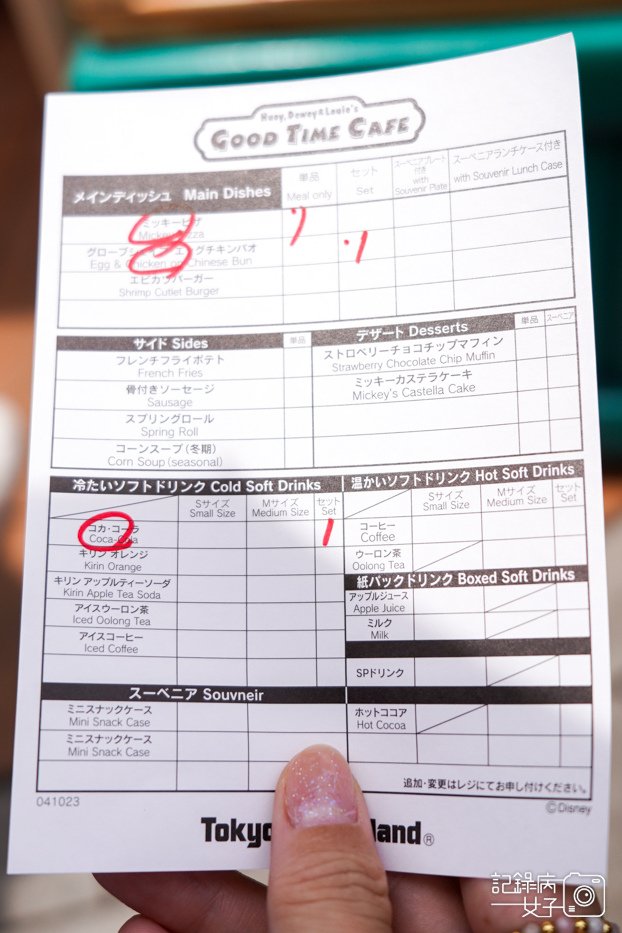 Huey, Dewey & Louie's
GOOD TIME CAFE
メインディッシュ Main Dishes
単品
Meal only
セット
Set
スーベニアプレート
付き
with
Souvenir Plate
スーベニアランチケース付き
with Souvenir Lunch Case
ミッキーピザ
Mickey Pizza
1
グローブシェイプ・エッグチキンパオ
Egg & Chicken on Chinese Bun
1
エビカツバーガー
Shrimp Cutlet Burger
サイド Sides
単品
フレンチフライポテト
French Fries
骨付きソーセージ
Sausage
スプリングロール
Spring Roll
コーンスープ（冬期）
Corn Soup (seasonal)
デザート Desserts
単品
スーベニア
ストロベリーチョコチップマフィン
Strawberry Chocolate Chip Muffin
ミッキーカステラケーキ
Mickey's Castella Cake
冷たいソフトドリンク Cold Soft Drinks
Sサイズ
Small Size
Mサイズ
Medium Size
セット
Set
コカ・コーラ
Coca-Cola
1
キリン オレンジ
Kirin Orange
キリン アップルティーソーダ
Kirin Apple Tea Soda
アイスウーロン茶
Iced Oolong Tea
アイスコーヒー
Iced Coffee
温かいソフトドリンク Hot Soft Drinks
Sサイズ
Small Size
Mサイズ
Medium Size
セット
Set
コーヒー
Coffee
ウーロン茶
Oolong Tea
紙パックドリンク Boxed Soft Drinks
アップルジュース
Apple Juice
ミルク
Milk
SPドリンク
ホットココア
Hot Cocoa
スーベニア Souvneir
ミニスナックケース
Mini Snack Case
ミニスナックケース
Mini Snack Case
追加・変更はレジにてお申し付けください。
041023
©Disney
Tokyo land®
記錄病
女子